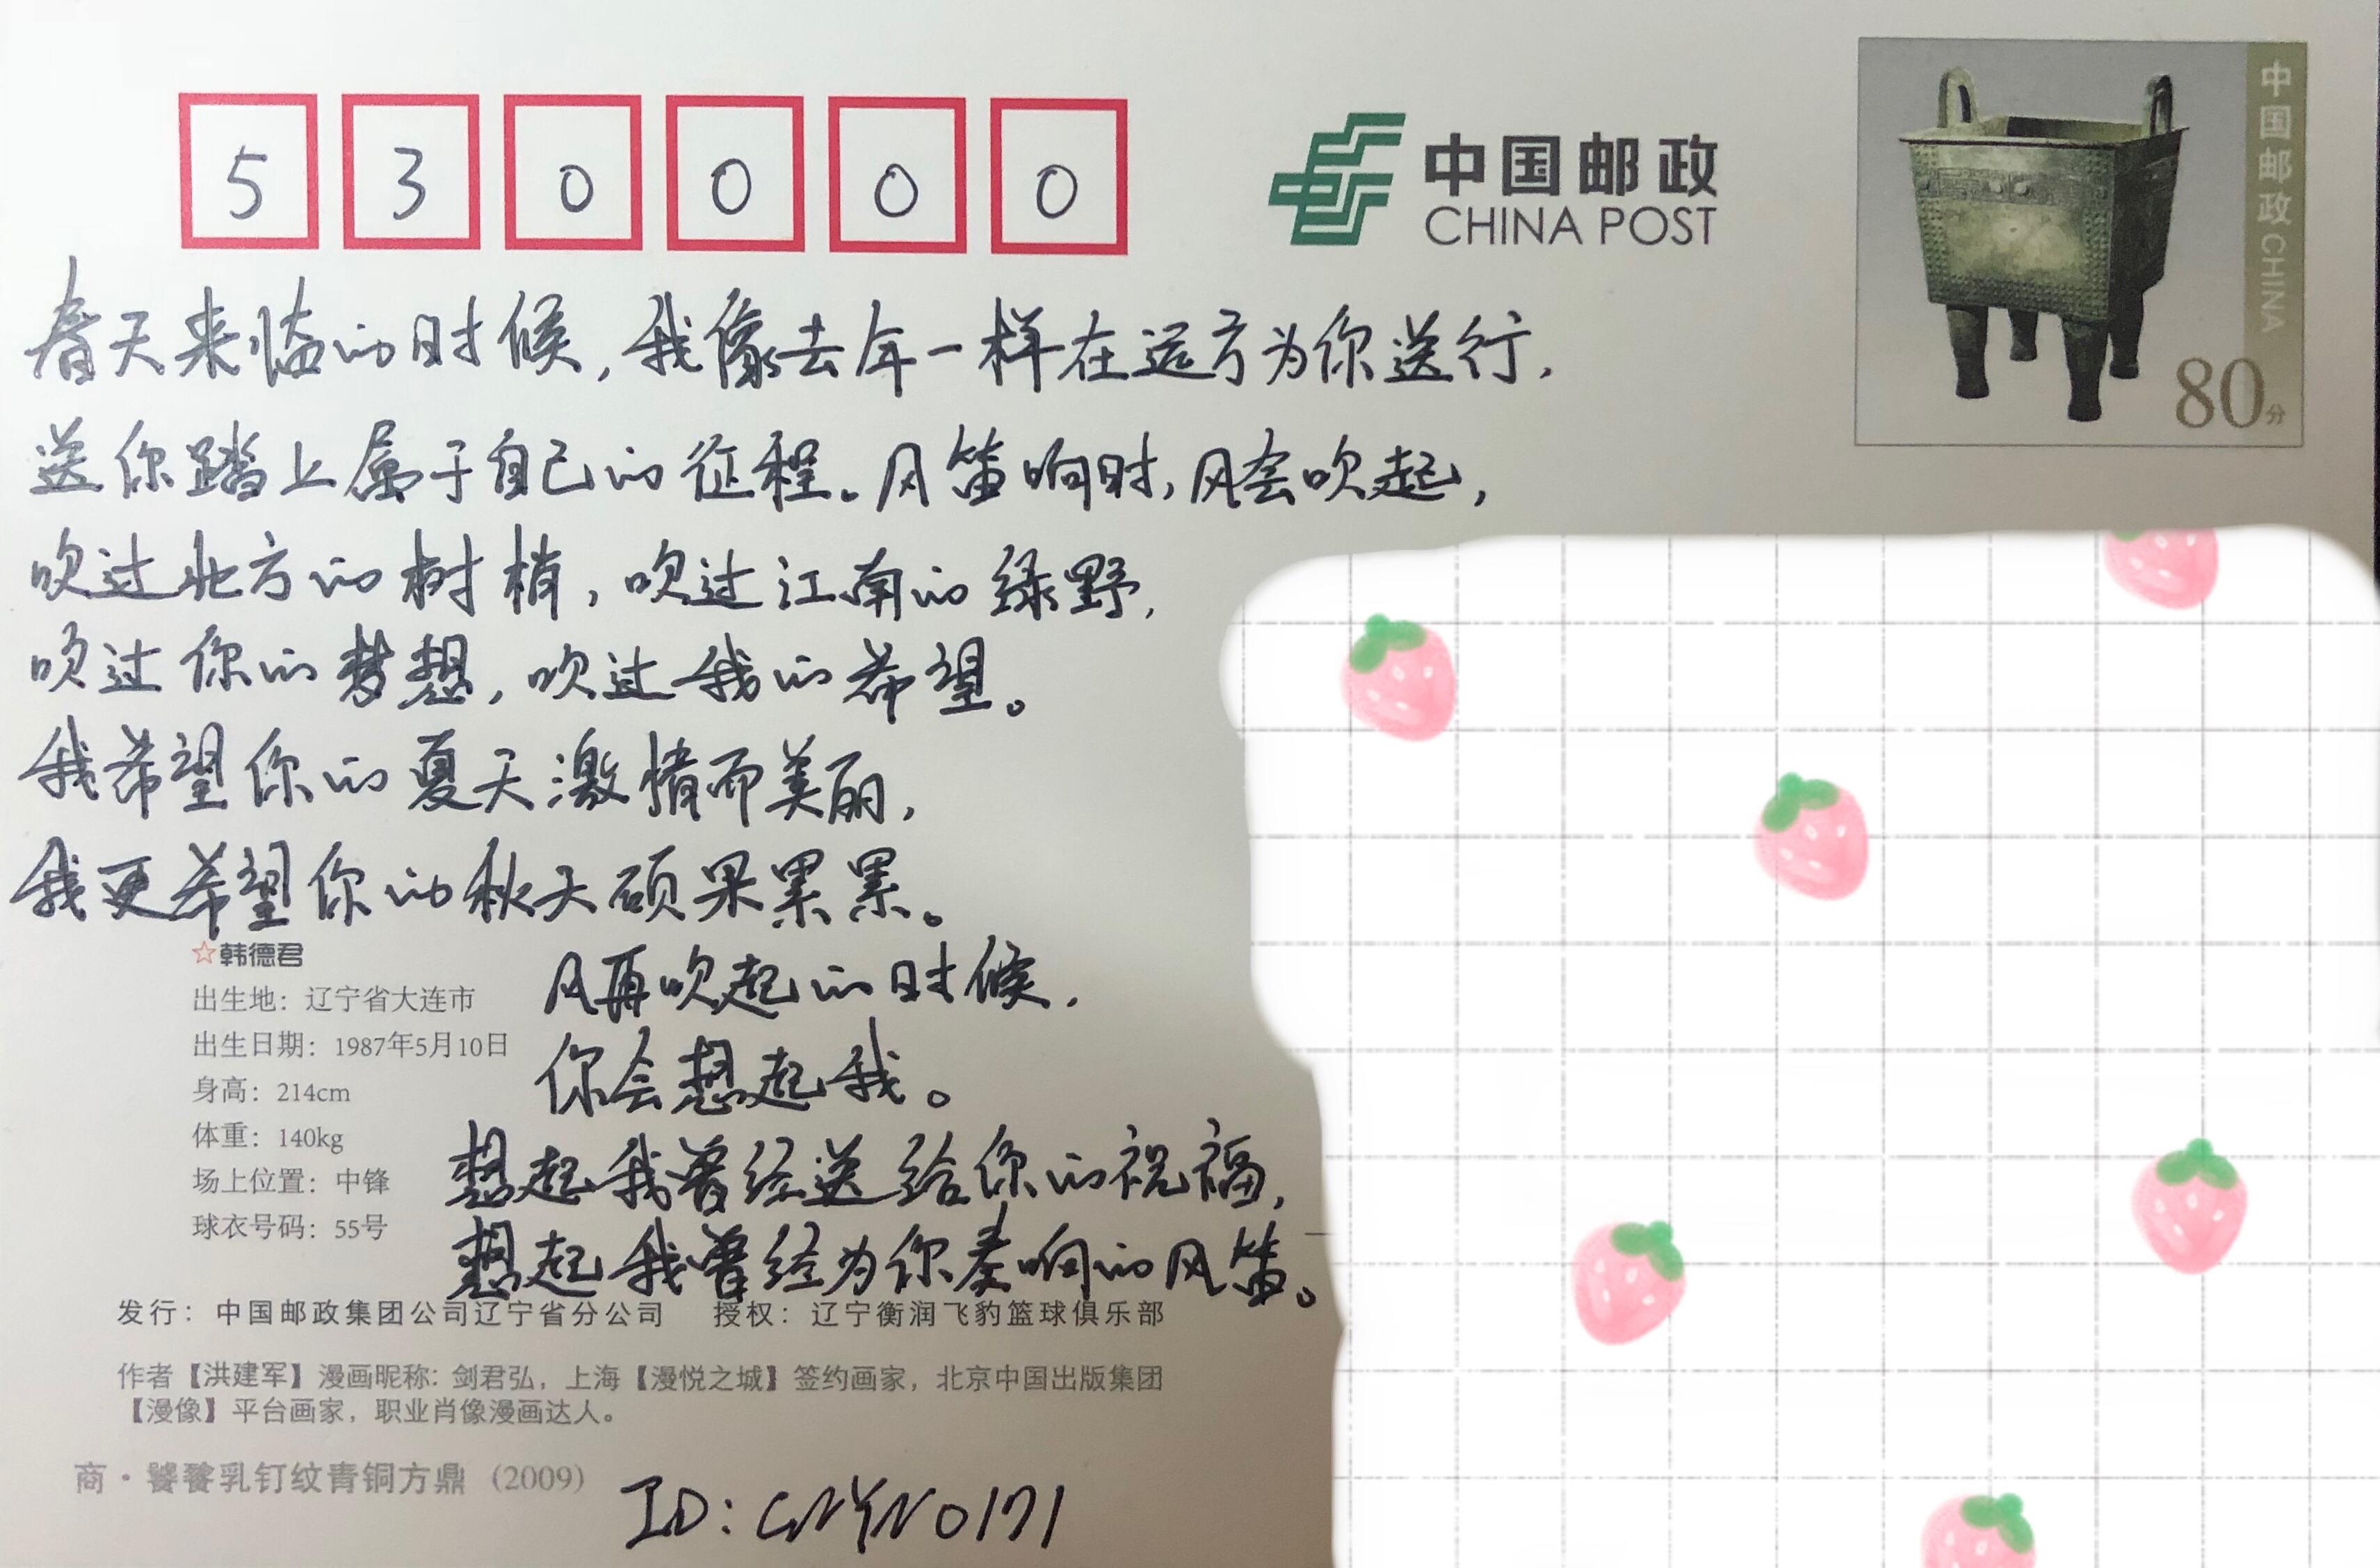 530000
中国邮政
CHINA POST
中国邮政 CHINA
80分
春天来临的时候,我像去年一样在远方为你送行,
送你踏上属于自己的征程。风笛响时,风会吹起,
吹过北方的树梢,吹过江南的绿野,
吹过你的梦想,吹过我的希望。
我希望你的夏天激情而美丽,
我更希望你的秋天硕果累累。
风再吹起的时候,
你会想起我。
想起我曾经送给你的祝福,
想起我曾经为你奏响的风笛。
☆韩德君
出生地：辽宁省大连市
出生日期：1987年5月10日
身高：214cm
体重：140kg
场上位置：中锋
球衣号码：55号
发行：中国邮政集团公司辽宁省分公司 授权：辽宁衡润飞豹篮球俱乐部
作者【洪建军】漫画昵称：剑君弘，上海【漫悦之城】签约画家，北京中国出版集团
【漫像】平台画家，职业肖像漫画达人。
商·饕餮乳钉纹青铜方鼎 (2009)
ID:CNYN0171